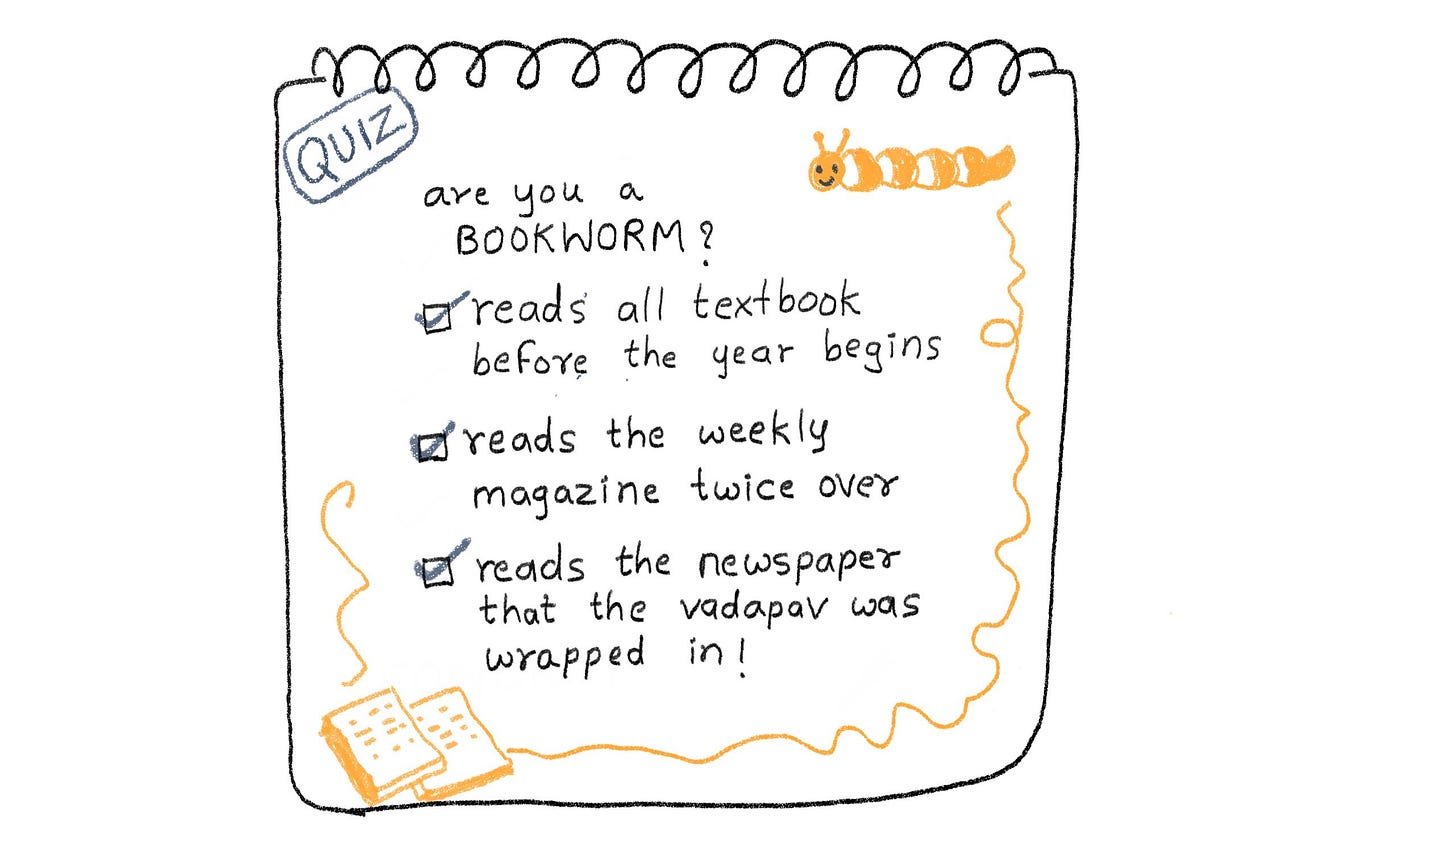 QUIZ
are you a
BOOKWORM?
reads all textbook
before the year begins
reads the weekly
magazine twice over
reads the newspaper
that the vadapav was
wrapped in!